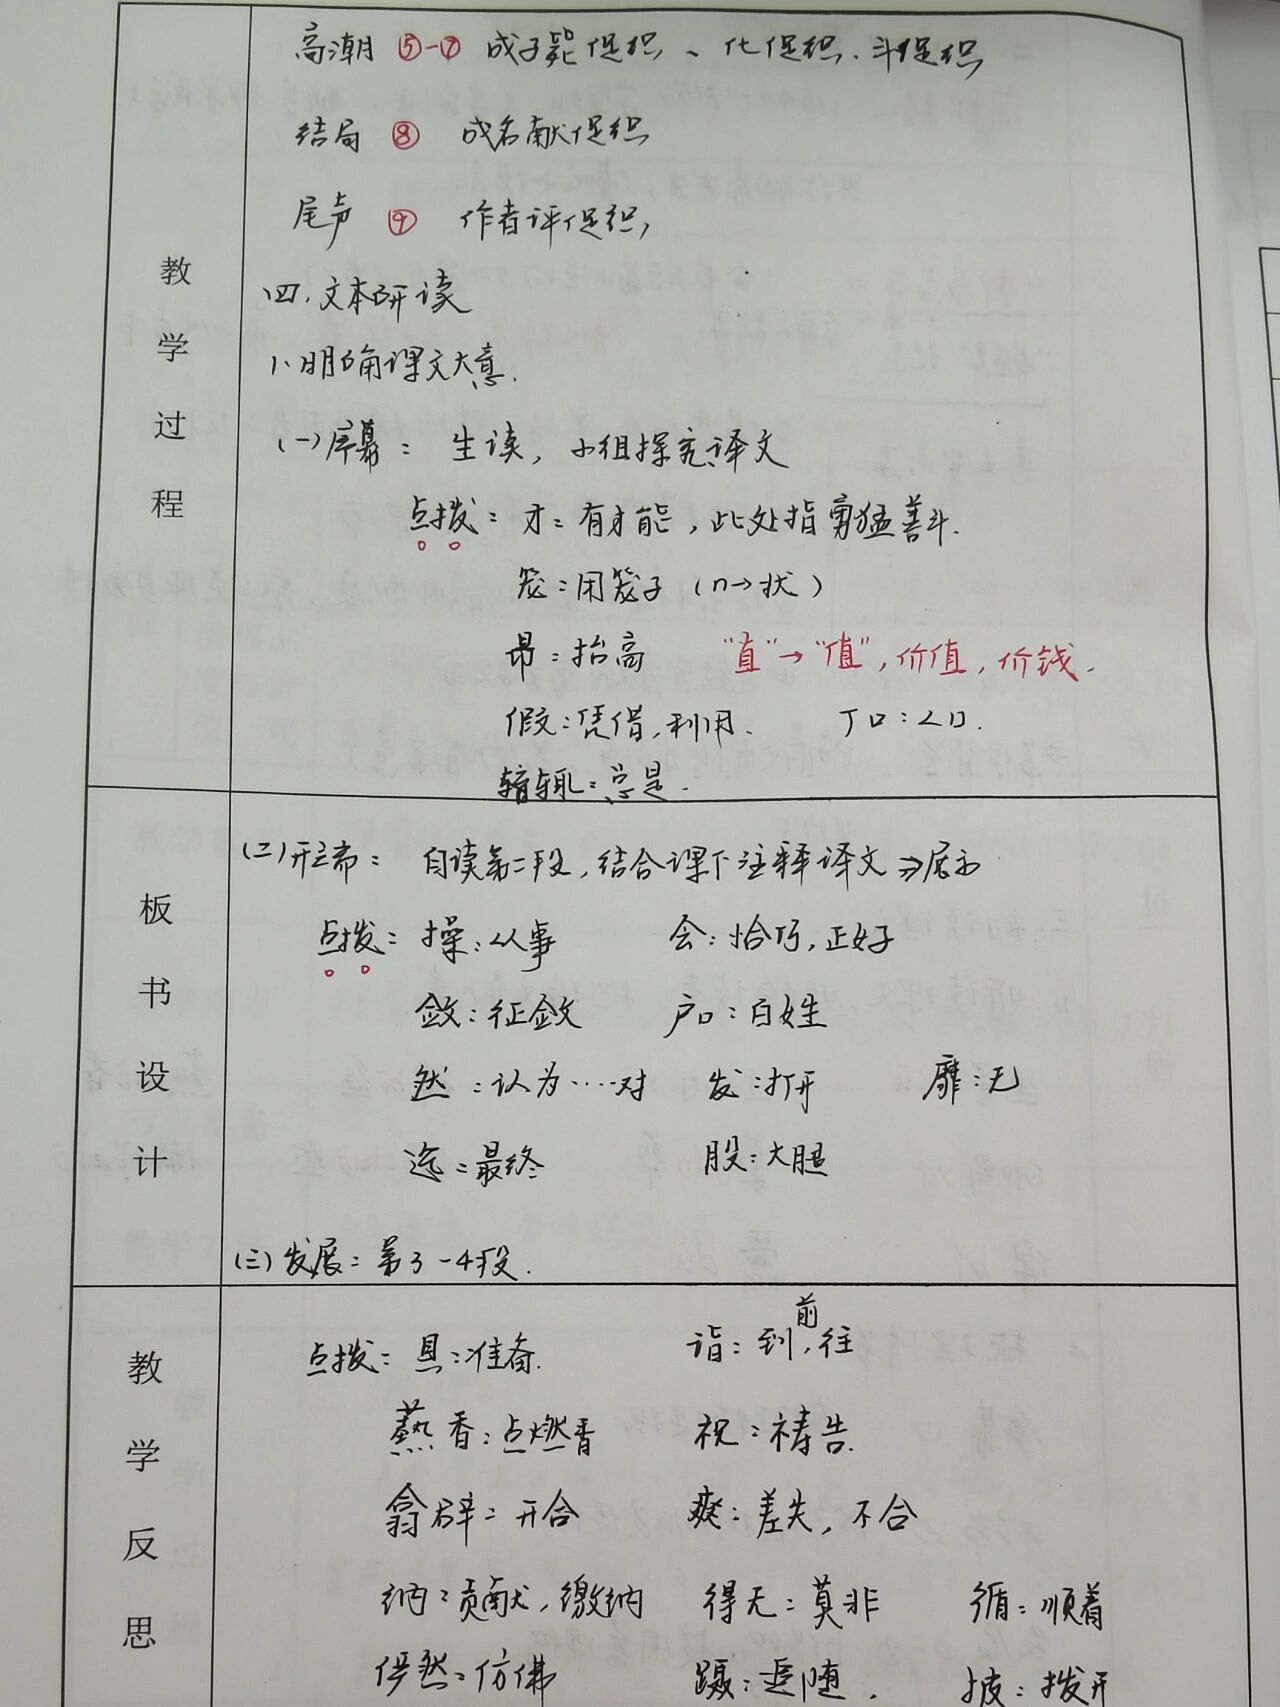 高潮 ⑤-⑦ 成子毙促织、化促织、斗促织
结局 ⑧ 成名献促织
尾声 ⑨ 作者评促织
四、文本研读
1、明确课文大意.
(一)序幕：生读，小组探究译文
点拨：才：有才能，此处指勇猛善斗.
笼：用笼子（n→状）
昂：抬高 “直”→“值”，价值，价钱.
假：凭借，利用. 丁口：人口.
辄：总是.
教学过程
(二)开端：自读第二段，结合课下注释译文⇒展示
点拨：操：从事 会：恰巧，正好
敛：征敛 户口：百姓
然：认为……对 发：打开 靡：无
迄：最终 股：大腿
(三)发展：第3-4段.
板书设计
点拨：具：准备. 诣：到，前往
爇香：点燃香 祝：祷告.
翕辟：开合 爽：差失，不合
纳：贡献，缴纳 得无：莫非 循：顺着
俨然：仿佛 蹑：追随. 披：拨开
教学反思